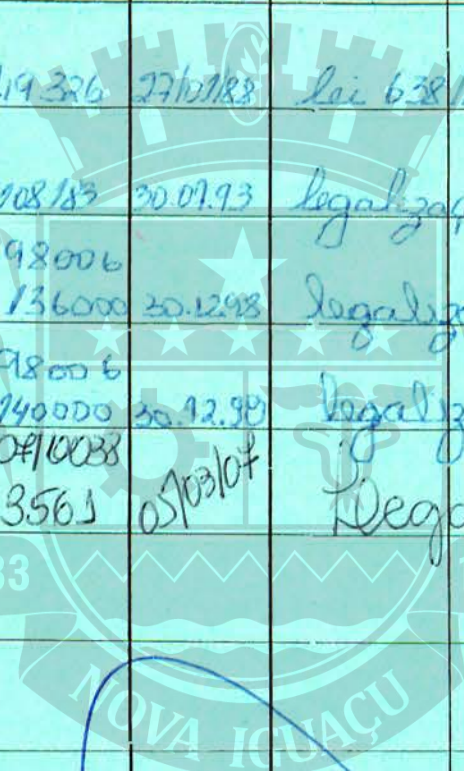 19.326 27/01/88 lei 638/
108/83 30.07.93 legalizaç
98006
136000 30.12.98 legaliz
98006
140000 30.12.98 legaliz
07/10038
3561 05/03/07 Lega
33
NOVA IGUAÇU